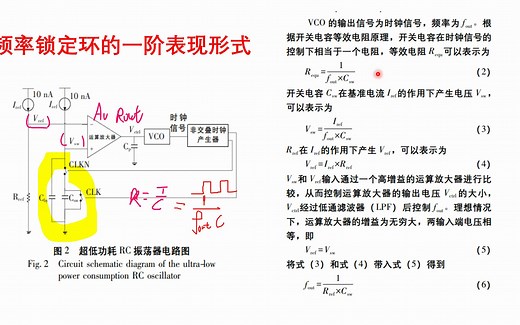 频率锁定环的一阶表现形式
10 nA 10 nA
I_ref I_ref
Av Rout
V_ref
V_ctrl
时钟信号
V_sw
运算放大器
VCO
非交叠时钟产生器
C_p
CLKN
CLK
R_ref
R = T/C = 1/(fout C)
图 2 超低功耗 RC 振荡器电路图
Fig. 2 Circuit schematic diagram of the ultra-low
power consumption RC oscillator
VCO 的输出信号为时钟信号，频率为 f_out。根
据开关电容等效电阻原理，开关电容在时钟信号的
控制下相当于一个电阻，等效电阻 R_equ 可以表示为
R_equ = 1/(f_out×C_sw) (2)
开关电容 C_sw 在基准电流 I_ref 的作用下产生电压 V_sw，
可以表示为
V_sw = I_ref/(f_out×C_sw) (3)
R_ref 在 I_ref 的作用下产生 V_ref，可以表示为
V_ref = I_ref×R_ref (4)
V_ref 和 V_sw 输入通过一个高增益的运算放大器进行比
较，从而控制运算放大器的输出电压 V_ctrl 的大小，
V_ctrl 经过低通滤波器（LPF）后控制 f_out。理想情况
下，运算放大器的增益为无穷大，两输入端电压相
等，即
V_ref = V_sw (5)
将式（3）和式（4）带入式（5）得到
f_out = 1/(R_ref×C_sw) (6)